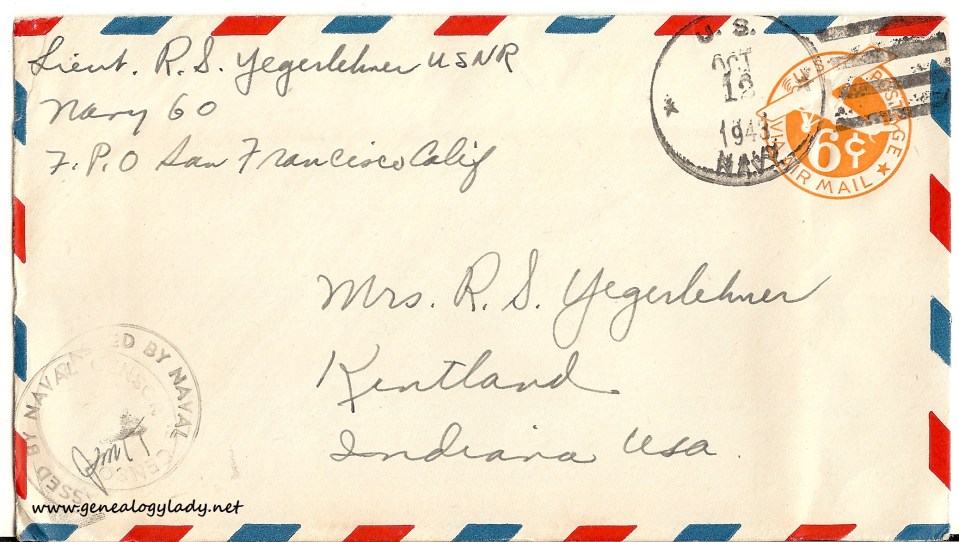 Lieut. R. S. Yegerlehner USNR
Navy 60
F. P. O San Francisco Calif
U. S.
OCT
12
1943
NAVY
U.S. POSTAGE
6¢
VIA AIR MAIL
Mrs. R. S. Yegerlehner
Kentland
Indiana USA.
PASSED BY NAVAL CENSOR
PASSED BY NAVAL CENSOR
www.genealogylady.net